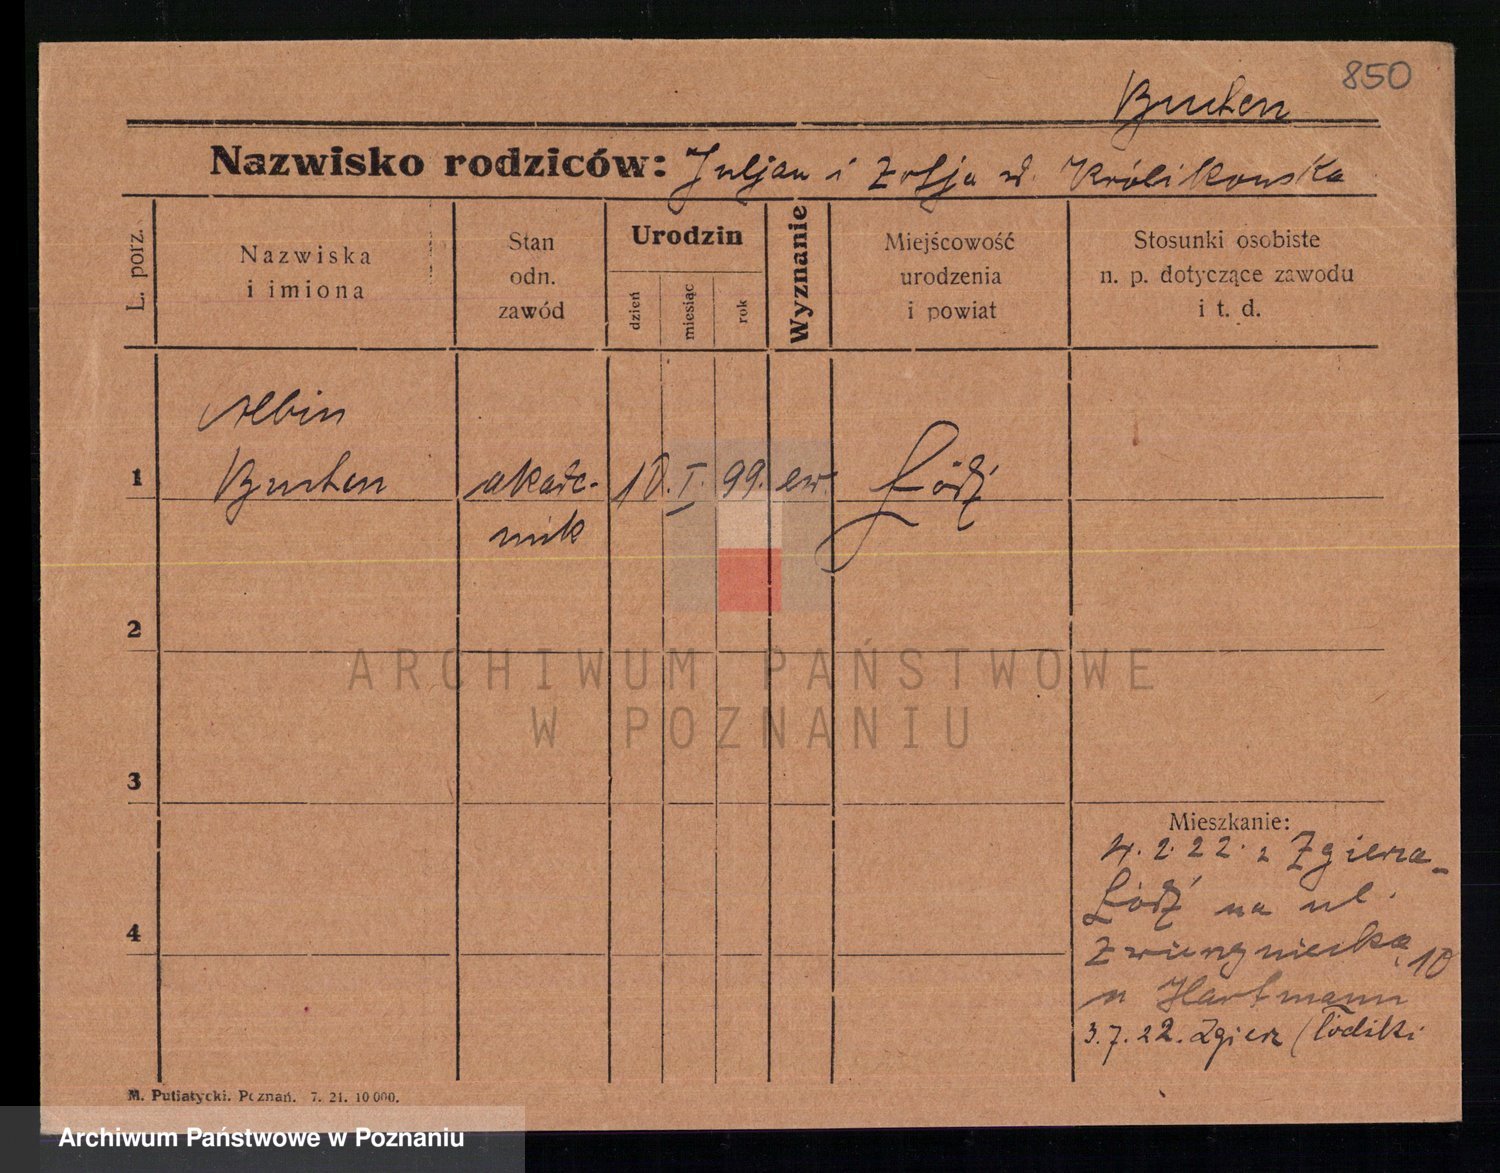 850
Nazwisko rodziców: Juljan i Zofja d. Królikowska
L. porz.
Nazwiska
i imiona
Stan
odn.
zawód
Urodzin
dzień
miesiąc
rok
Wyznanie
Miejścowość
urodzenia
i powiat
Stosunki osobiste
n. p. dotyczące zawodu
i t. d.
Albin
1
akade-
10. I. 99. ew.
Łódź
mik
2
ARCHIWUM PAŃSTWOWE
W POZNANIU
3
Mieszkanie:
4. 2. 22. z Zgierza-
Łódź na ul.
4
10
u Hartmann
3. 7. 22. Zgierz
M. Putiatycki. Poznań. 7. 21. 10 000.
Archiwum Państwowe w Poznaniu